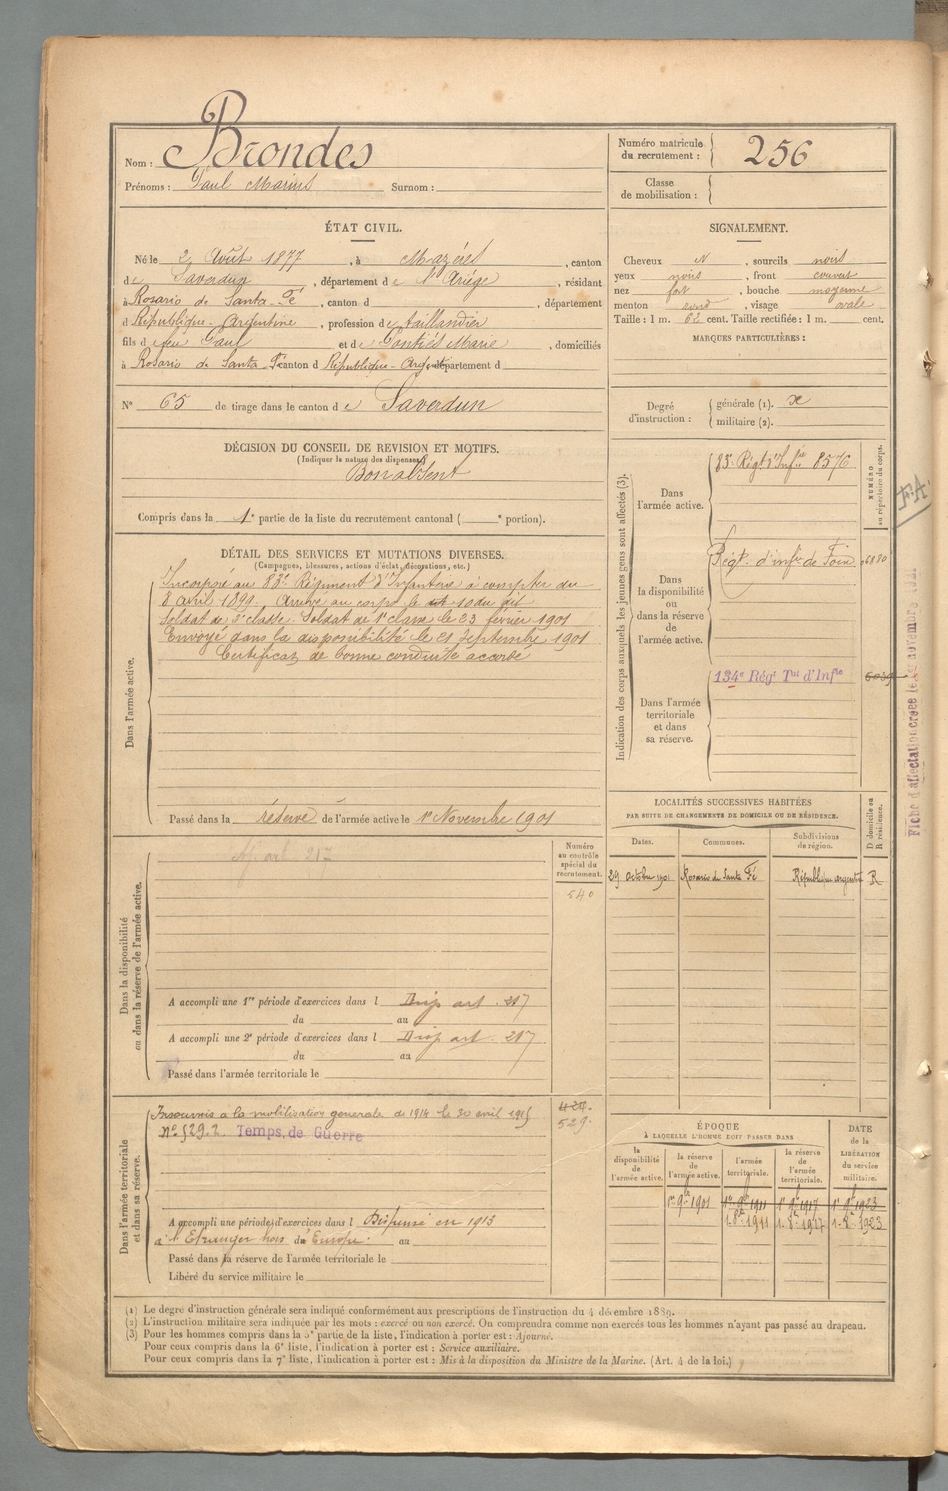 Nom : Brondes
Prénoms : Paul Marius Surnom :
Numéro matricule du recrutement : 256
Classe de mobilisation :
ÉTAT CIVIL.
Né le 2 Août 1877, à Mazères, canton
de Saverdun, département de l'Ariège, résidant
à Rosario de Santa-Fé, canton d , département
d République-Argentine, profession de taillandier
fils de feu Paul et de Marie, domiciliés
à Rosario de Santa Fé canton d République-Argentine département d
N° 65 de tirage dans le canton de Saverdun
SIGNALEMENT.
Cheveux N, sourcils noirs
yeux noirs, front couvert
nez fort, bouche moyenne
menton rond, visage ovale
Taille : 1 m. 62 cent. Taille rectifiée : 1 m. cent.
MARQUES PARTICULIÈRES :
Degré d'instruction : générale (1). x
militaire (2).
DÉCISION DU CONSEIL DE REVISION ET MOTIFS.
(Indiquer la nature des dispenses.)
Bon absent
Compris dans la 1e partie de la liste du recrutement cantonal ( e portion).
DÉTAIL DES SERVICES ET MUTATIONS DIVERSES.
(Campagnes, blessures, actions d'éclat, décorations, etc.)
Dans l'armée active.
Incorporé au 83e Régiment d'Infanterie à compter du
8 avril 1899. Arrivé au corps le 10 du dit
Soldat de 2e classe. Soldat de 1e classe le 23 février 1901
Envoyé dans la disponibilité le 21 Septembre 1901
Certificat de bonne conduite accordé
Passé dans la réserve de l'armée active le 1er Novembre 1901
Indication des corps auxquels les jeunes gens sont affectés (3).
NUMÉRO au répertoire du corps.
Dans l'armée active.
83e Régt d'Infie 8576
Dans la disponibilité ou dans la réserve de l'armée active.
Régt. d'infie de Foix
Dans l'armée territoriale et dans sa réserve.
134e Régt Tal d'Infie
F.A.
Fiche d'affectation créée le
LOCALITÉS SUCCESSIVES HABITÉES
PAR SUITE DE CHANGEMENTS DE DOMICILE OU DE RÉSIDENCE.
D domicile ou R résidence.
Dates. Communes. Subdivisions de région.
29 octobre 1901 Rosario de Santa Fé République argentine R
Dans la disponibilité ou dans la réserve de l'armée active.
Numéro au contrôle spécial du recrutement.
540
A accompli une 1re période d'exercices dans l Disp art. 217
du au
A accompli une 2e période d'exercices dans l Disp art. 217
du au
Passé dans l'armée territoriale le
Dans l'armée territoriale et dans sa réserve.
Insoumis a la mobilisation générale de 1914 le 30 avril 1915
N° 529.2 Temps de Guerre
529.
A accompli une période d'exercices dans l Dispensé en 1913
à l'Etranger hors du Europe. au
Passé dans la réserve de l'armée territoriale le
Libéré du service militaire le
ÉPOQUE
À LAQUELLE L'HOMME DOIT PASSER DANS
la disponibilité de l'armée active. la réserve de l'armée active. l'armée territoriale. la réserve de l'armée territoriale.
DATE de la LIBÉRATION du service militaire.
1er 9bre 1901 1er 9bre 1911 1er 9bre 1917 1er 9bre 1923
1-8bre 1911 1-8bre 1917 1-8bre 1923
(1) Le degré d'instruction générale sera indiqué conformément aux prescriptions de l'instruction du 4 décembre 1889.
(2) L'instruction militaire sera indiquée par les mots : exercé ou non exercé. On comprendra comme non exercés tous les hommes n'ayant pas passé au drapeau.
(3) Pour les hommes compris dans la 5e partie de la liste, l'indication à porter est : Ajourné.
Pour ceux compris dans la 6e liste, l'indication à porter est : Service auxiliaire.
Pour ceux compris dans la 7e liste, l'indication à porter est : Mis à la disposition du Ministre de la Marine. (Art. 4 de la loi.)